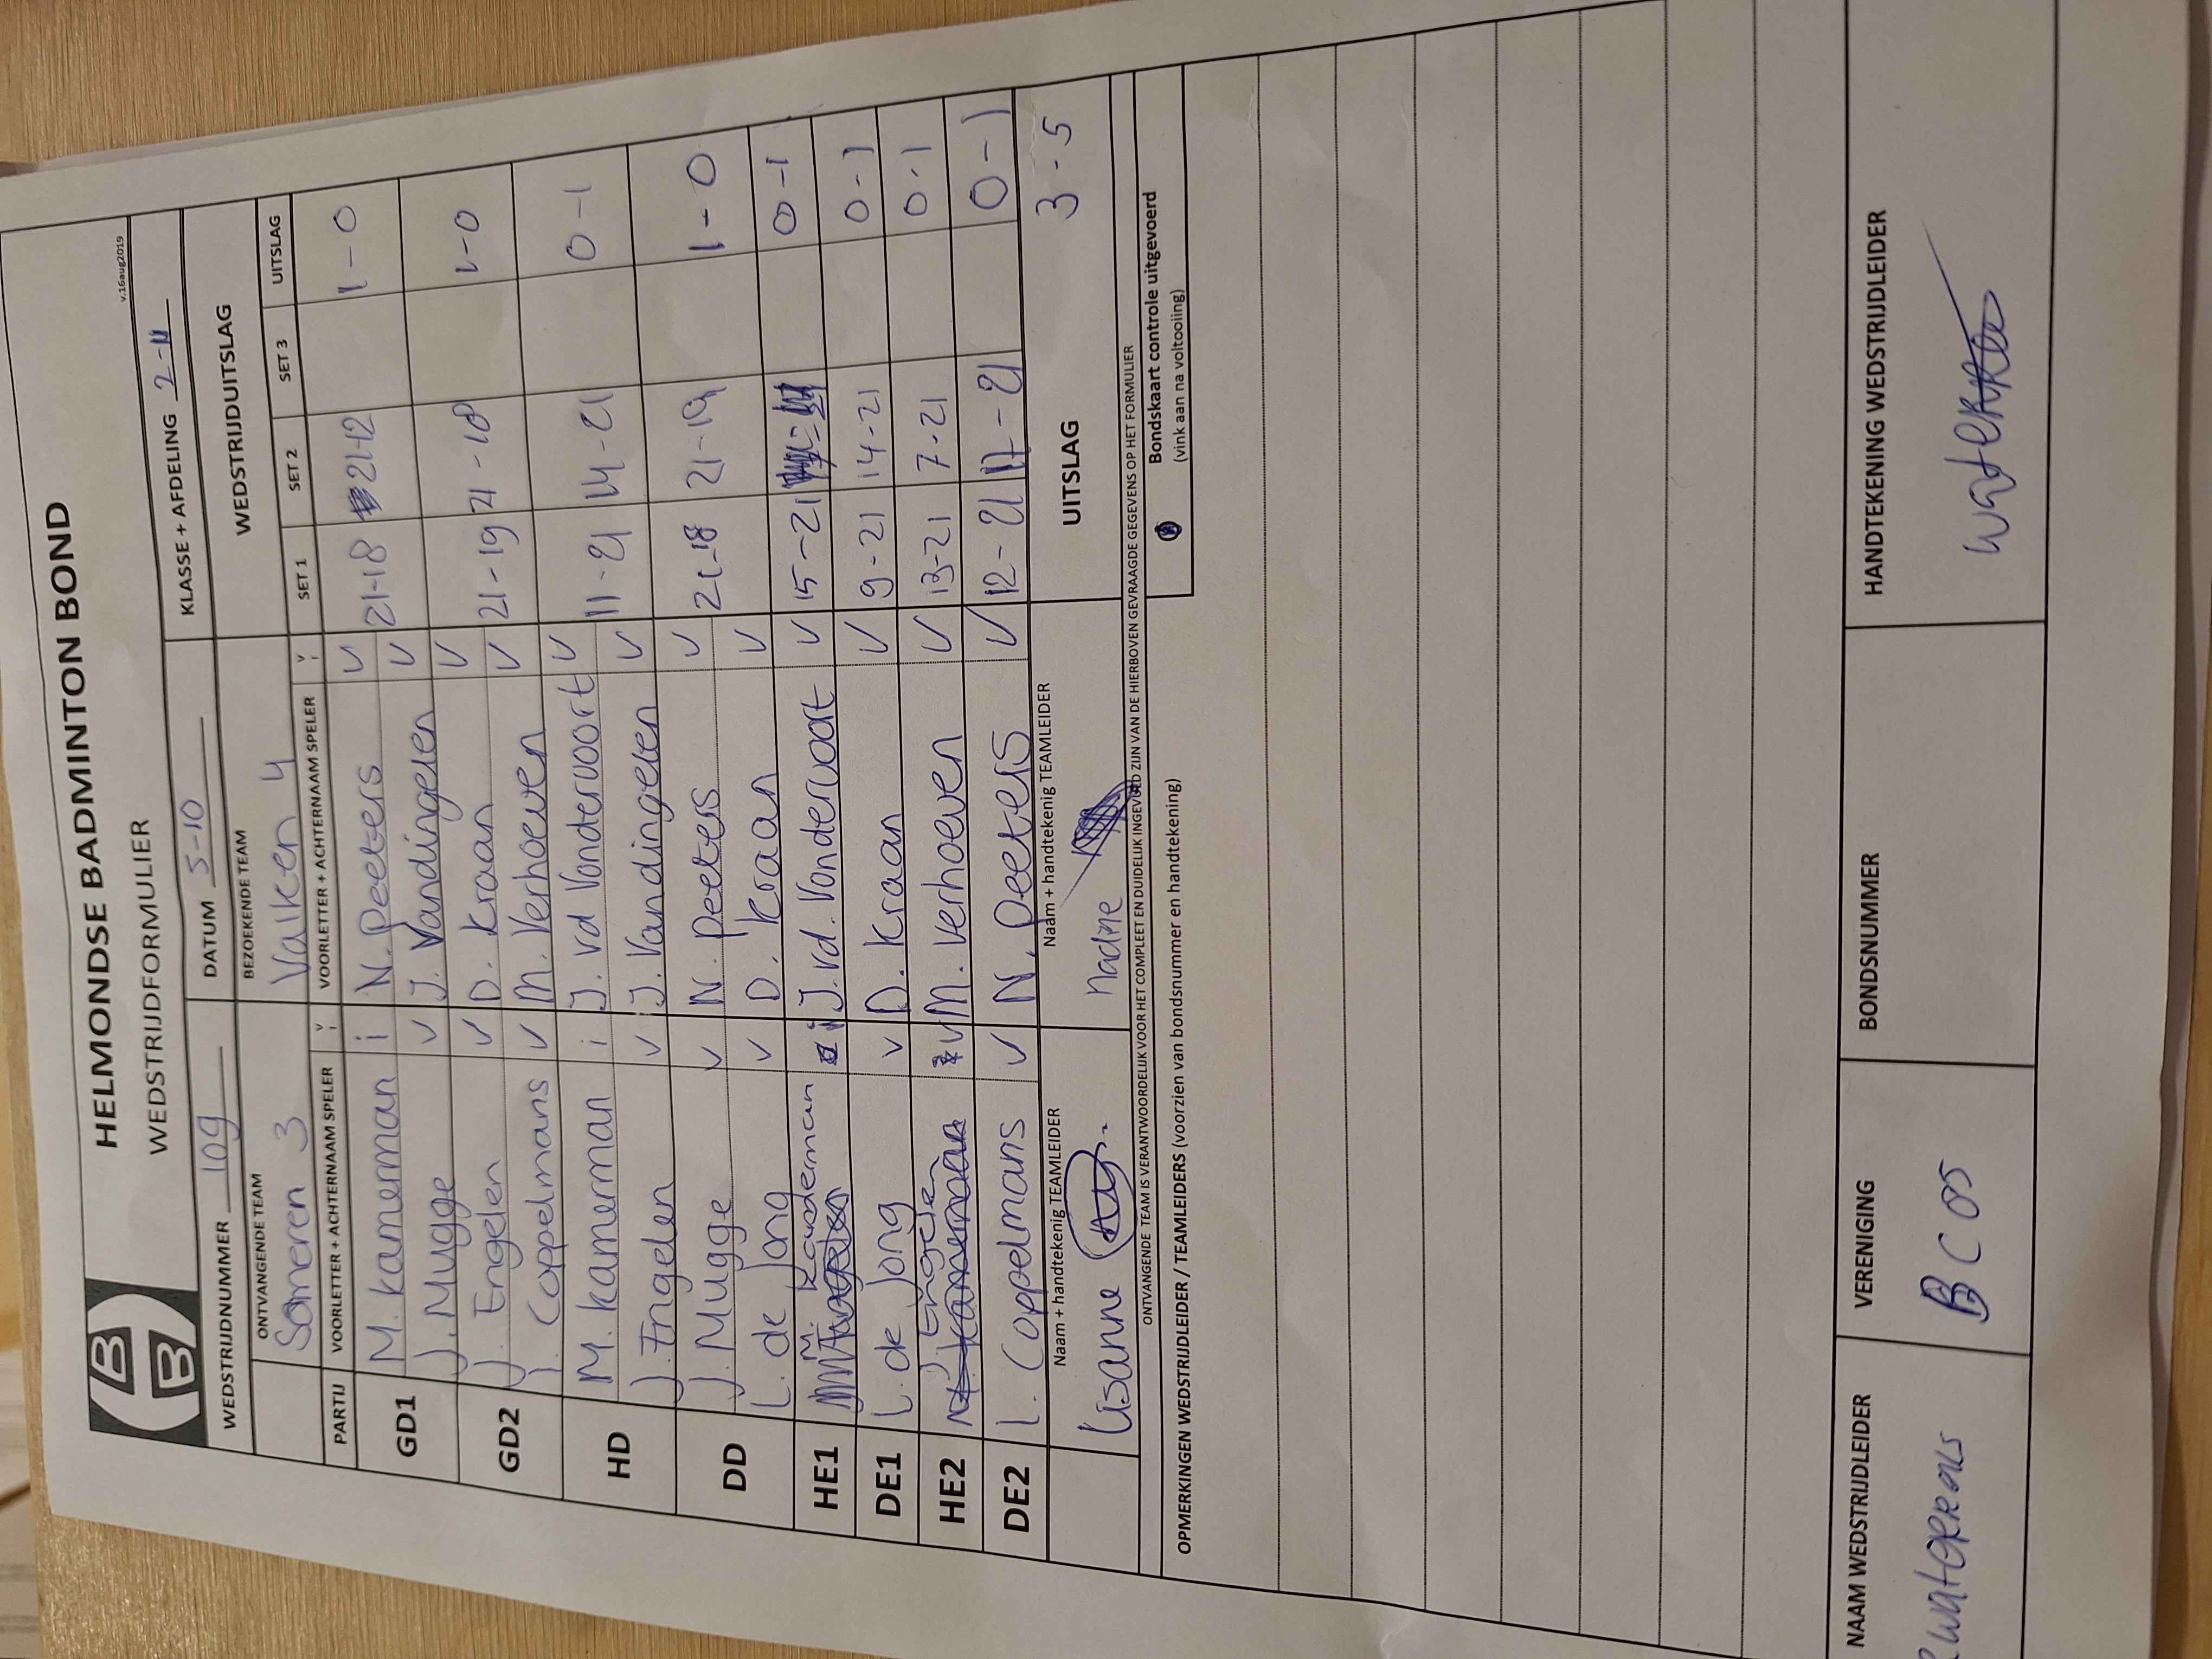 HELMONDSE BADMINTON BOND
WEDSTRIJDFORMULIER
v.16aug2019
WEDSTRIJDNUMMER 109 DATUM 5-10 KLASSE + AFDELING 2-
ONTVANGENDE TEAM BEZOEKENDE TEAM WEDSTRIJDUITSLAG
Someren 3 Valken 4
PARTIJ VOORLETTER + ACHTERNAAM SPELER V i VOORLETTER + ACHTERNAAM SPELER V i SET 1 SET 2 SET 3 UITSLAG
GD1 M. Kamerman i N. Peeters V 21-18 21-12 1-0
J. Mugge V J. Vandingelen V
GD2 J. Engelen V D. Kraan V 21-19 21-18 1-0
l. Coppelmans V M. Verhoeven V
HD M. Kamerman i J. vd Vondervoort V 11-21 14-21 0-1
J. Engelen V J. Vandingelen V
DD J. Mugge V N. Peeters V 21-18 21-19 1-0
L. de Jong V D. Kraan V
HE1 M. i J. vd. Vondervoort V 15-21 0-1
DE1 L. de Jong V D. Kraan V 9-21 14-21 0-1
HE2 J. Engelen V M. Verhoeven V 13-21 7-21 0-1
DE2 l. Coppelmans V N. Peeters V 12-21 17-21 0-1
Naam + handtekenig TEAMLEIDER Naam + handtekenig TEAMLEIDER UITSLAG 3-5
Lisanne Nadine
ONTVANGENDE TEAM IS VERANTWOORDELIJK VOOR HET COMPLEET EN DUIDELIJK INGEVULD ZIJN VAN DE HIERBOVEN GEVRAAGDE GEGEVENS OP HET FORMULIER
Bondskaart controle uitgevoerd
(vink aan na voltooiing)
OPMERKINGEN WEDSTRIJDLEIDER / TEAMLEIDERS (voorzien van bondsnummer en handtekening)
NAAM WEDSTRIJDLEIDER VERENIGING BONDSNUMMER HANDTEKENING WEDSTRIJDLEIDER
BCOS